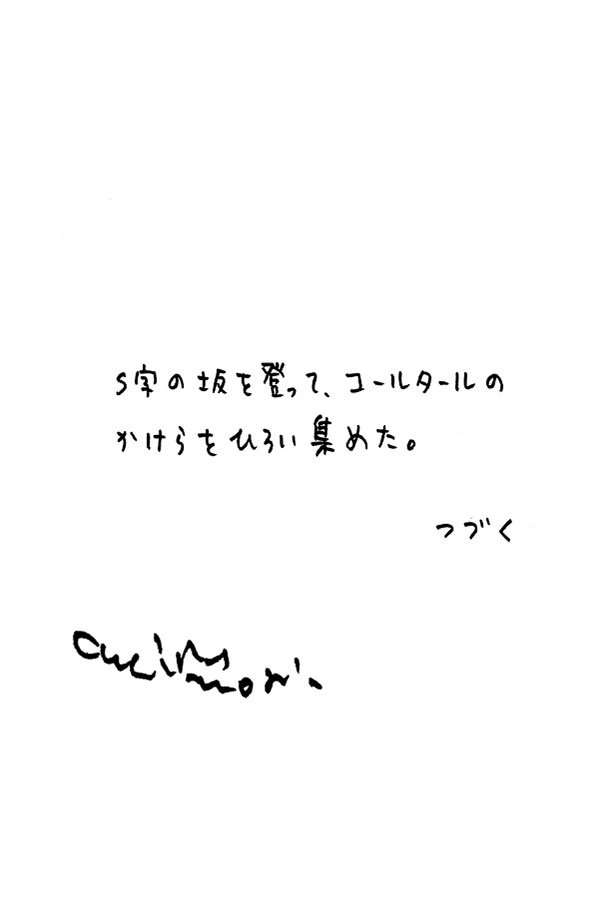 S字の坂を登って、コールタールの
かけらをひろい集めた。
つづく